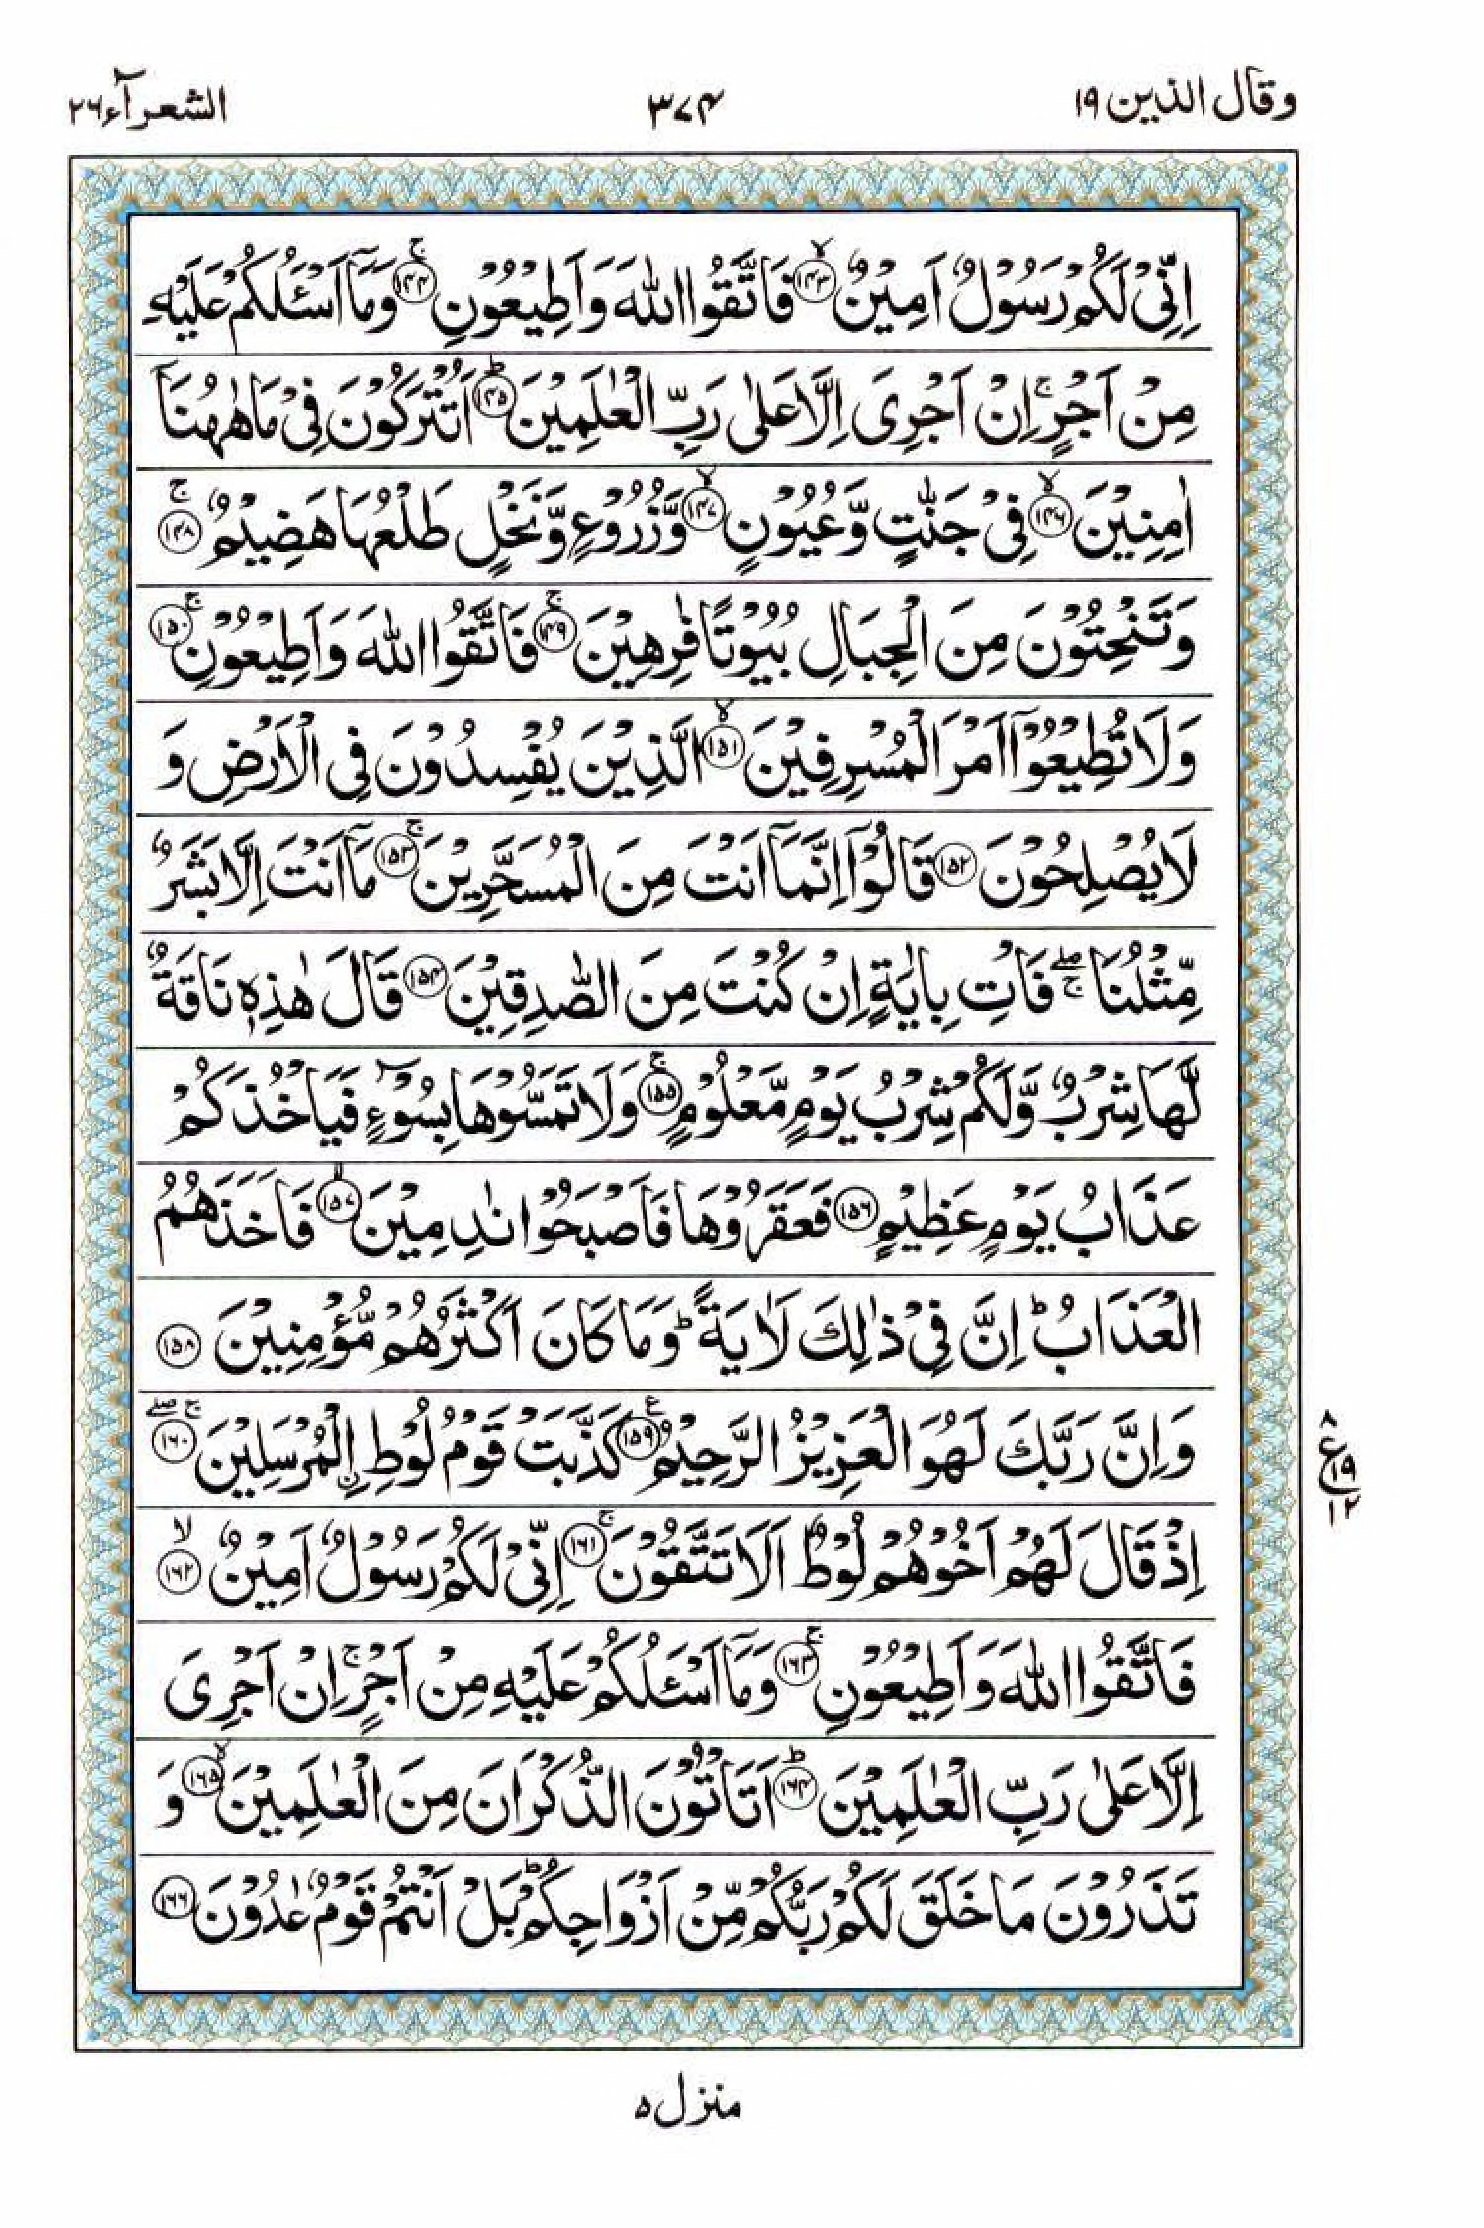 وقال الذين ١٩ ٣٧٤ الشعرآء ٢٦
اِنِّیْ لَكُمْ رَسُوْلٌ اَمِیْنٌۙ ﴿١٤٣﴾ فَاتَّقُوا اللّٰهَ وَ اَطِیْعُوْنِۚ ﴿١٤٤﴾ وَ مَاۤ اَسْـَٔلُكُمْ عَلَیْهِ
مِنْ اَجْرٍۚ اِنْ اَجْرِیَ اِلَّا عَلٰی رَبِّ الْعٰلَمِیْنَؕ ﴿١٤٥﴾ اَتُتْرَكُوْنَ فِیْ مَا هٰهُنَاۤ
اٰمِنِیْنَۙ ﴿١٤٦﴾ فِیْ جَنّٰتٍ وَّ عُیُوْنٍۙ ﴿١٤٧﴾ وَّ زُرُوْعٍ وَّ نَخْلٍ طَلْعُهَا هَضِیْمٌۚ ﴿١٤٨﴾
وَ تَنْحِتُوْنَ مِنَ الْجِبَالِ بُیُوْتًا فٰرِهِیْنَۚ ﴿١٤٩﴾ فَاتَّقُوا اللّٰهَ وَ اَطِیْعُوْنِۚ ﴿١٥٠﴾
وَ لَا تُطِیْعُوْۤا اَمْرَ الْمُسْرِفِیْنَۙ ﴿١٥١﴾ الَّذِیْنَ یُفْسِدُوْنَ فِی الْاَرْضِ وَ
لَا یُصْلِحُوْنَ ﴿١٥٢﴾ قَالُوْۤا اِنَّمَاۤ اَنْتَ مِنَ الْمُسَحَّرِیْنَۚ ﴿١٥٣﴾ مَاۤ اَنْتَ اِلَّا بَشَرٌ
مِّثْلُنَا ۚۖ فَاْتِ بِاٰیَةٍ اِنْ كُنْتَ مِنَ الصّٰدِقِیْنَ ﴿١٥٤﴾ قَالَ هٰذِهٖ نَاقَةٌ
لَّهَا شِرْبٌ وَّ لَكُمْ شِرْبُ یَوْمٍ مَّعْلُوْمٍۚ ﴿١٥٥﴾ وَ لَا تَمَسُّوْهَا بِسُوْٓءٍ فَیَاْخُذَكُمْ
عَذَابُ یَوْمٍ عَظِیْمٍ ﴿١٥٦﴾ فَعَقَرُوْهَا فَاَصْبَحُوْا نٰدِمِیْنَۙ ﴿١٥٧﴾ فَاَخَذَهُمُ
الْعَذَابُؕ اِنَّ فِیْ ذٰلِكَ لَاٰیَةًؕ وَ مَا كَانَ اَكْثَرُهُمْ مُّؤْمِنِیْنَ ﴿١٥٨﴾
وَ اِنَّ رَبَّكَ لَهُوَ الْعَزِیْزُ الرَّحِیْمُ ﴿١٥٩﴾ ع كَذَّبَتْ قَوْمُ لُوْطِ ِ۟الْمُرْسَلِیْنَۚۖ ﴿١٦٠﴾
٨ ع ١٩ ١٢
اِذْ قَالَ لَهُمْ اَخُوْهُمْ لُوْطٌ اَلَا تَتَّقُوْنَۚ ﴿١٦١﴾ اِنِّیْ لَكُمْ رَسُوْلٌ اَمِیْنٌۙ ﴿١٦٢﴾
فَاتَّقُوا اللّٰهَ وَ اَطِیْعُوْنِۚ ﴿١٦٣﴾ وَ مَاۤ اَسْـَٔلُكُمْ عَلَیْهِ مِنْ اَجْرٍۚ اِنْ اَجْرِیَ
اِلَّا عَلٰی رَبِّ الْعٰلَمِیْنَؕ ﴿١٦٤﴾ اَتَاْتُوْنَ الذُّكْرَانَ مِنَ الْعٰلَمِیْنَۙ ﴿١٦٥﴾ وَ
تَذَرُوْنَ مَا خَلَقَ لَكُمْ رَبُّكُمْ مِّنْ اَزْوَاجِكُمْؕ بَلْ اَنْتُمْ قَوْمٌ عٰدُوْنَ ﴿١٦٦﴾
منزل ٥